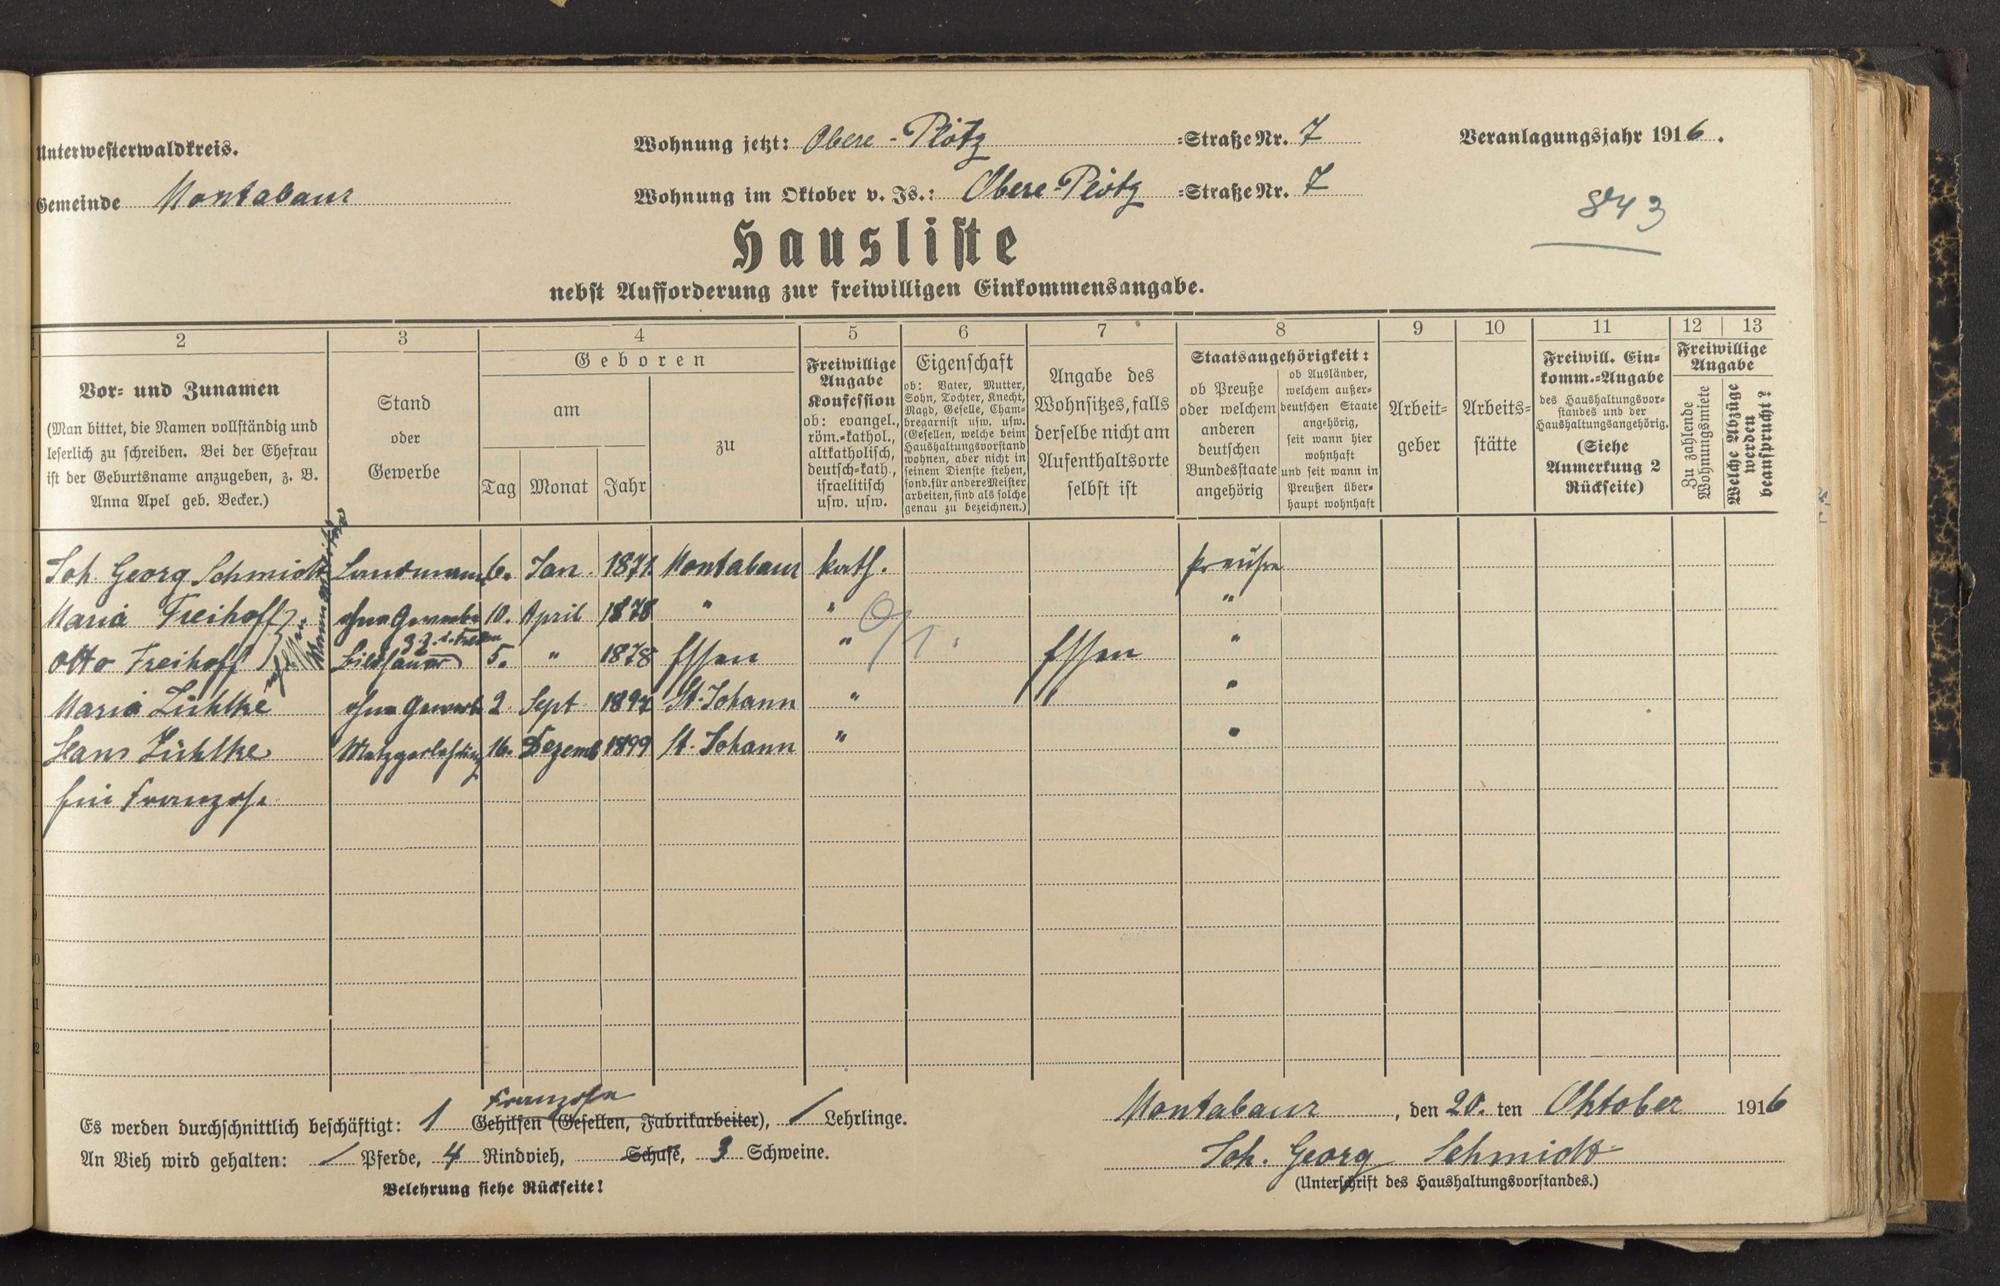 Unterwesterwaldkreis.
Wohnung jetzt: Obere-Plötz =Straße Nr. 7
Veranlagungsjahr 1916.
Gemeinde Montabaur
Wohnung im Oktober v. Js.: Obere-Plötz =Straße Nr. 7
843
Hausliste
nebst Aufforderung zur freiwilligen Einkommensangabe.
2 3 4 5 6 7 8 9 10 11 12 13
Vor- und Zunamen
(Man bittet, die Namen vollständig und
leserlich zu schreiben. Bei der Ehefrau
ist der Geburtsname anzugeben, z. B.
Anna Apel geb. Becker.)
Stand
oder
Gewerbe
Geboren
am
Tag Monat Jahr
zu
Freiwillige
Angabe
Konfession
ob: evangel.,
röm.-kathol.,
altkatholisch,
deutsch-kath.,
israelitisch
usw. usw.
Eigenschaft
ob: Vater, Mutter,
Sohn, Tochter, Knecht,
Magd, Geselle, Cham-
bregarnist usw. usw.
(Gesellen, welche beim
Haushaltungsvorstand
wohnen, aber nicht in
seinem Dienste stehen,
sond. für andere Meister
arbeiten, sind als solche
genau zu bezeichnen.)
Angabe des
Wohnsitzes, falls
derselbe nicht am
Aufenthaltsorte
selbst ist
Staatsangehörigkeit:
ob Preuße
oder welchem
anderen
deutschen
Bundesstaate
angehörig
ob Ausländer,
welchem außer-
deutschen Staate
angehörig,
seit wann hier
wohnhaft
und seit wann in
Preußen über-
haupt wohnhaft
Arbeit-
geber
Arbeits-
stätte
Freiwill. Ein-
komm.-Angabe
des Haushaltungsvor-
standes und der
Haushaltungsangehörig.
(Siehe
Anmerkung 2
Rückseite)
Freiwillige
Angabe
Zu zahlende
Wohnungsmiete
Welche Abzüge
werden
beansprucht?
Joh. Georg Schmidt Landmann 6. Jan. 1871 Montabaur kath. Preuße
Maria Freihoff ohne Gewerbe 10. April 1878 " " "
z. Z. i. Felde
Otto Freihoff Bildhauer 5. " 1878 Essen " Essen "
Maria Lühlke ohne Gewerb 2. Sept 1897 St. Johann " "
Hans Lühlke Metzgerlehrling 16. Dezemb 1899 St. Johann " "
Ein Franzose
Franzosen
Es werden durchschnittlich beschäftigt: 1 Gehilfen (Gesellen, Fabrikarbeiter), / Lehrlinge.
An Vieh wird gehalten: / Pferde, 4 Rindvieh, Schafe, 3 Schweine.
Belehrung siehe Rückseite!
Montabaur, den 20. ten Oktober 1916
Joh. Georg Schmidt
(Unterschrift des Haushaltungsvorstandes.)